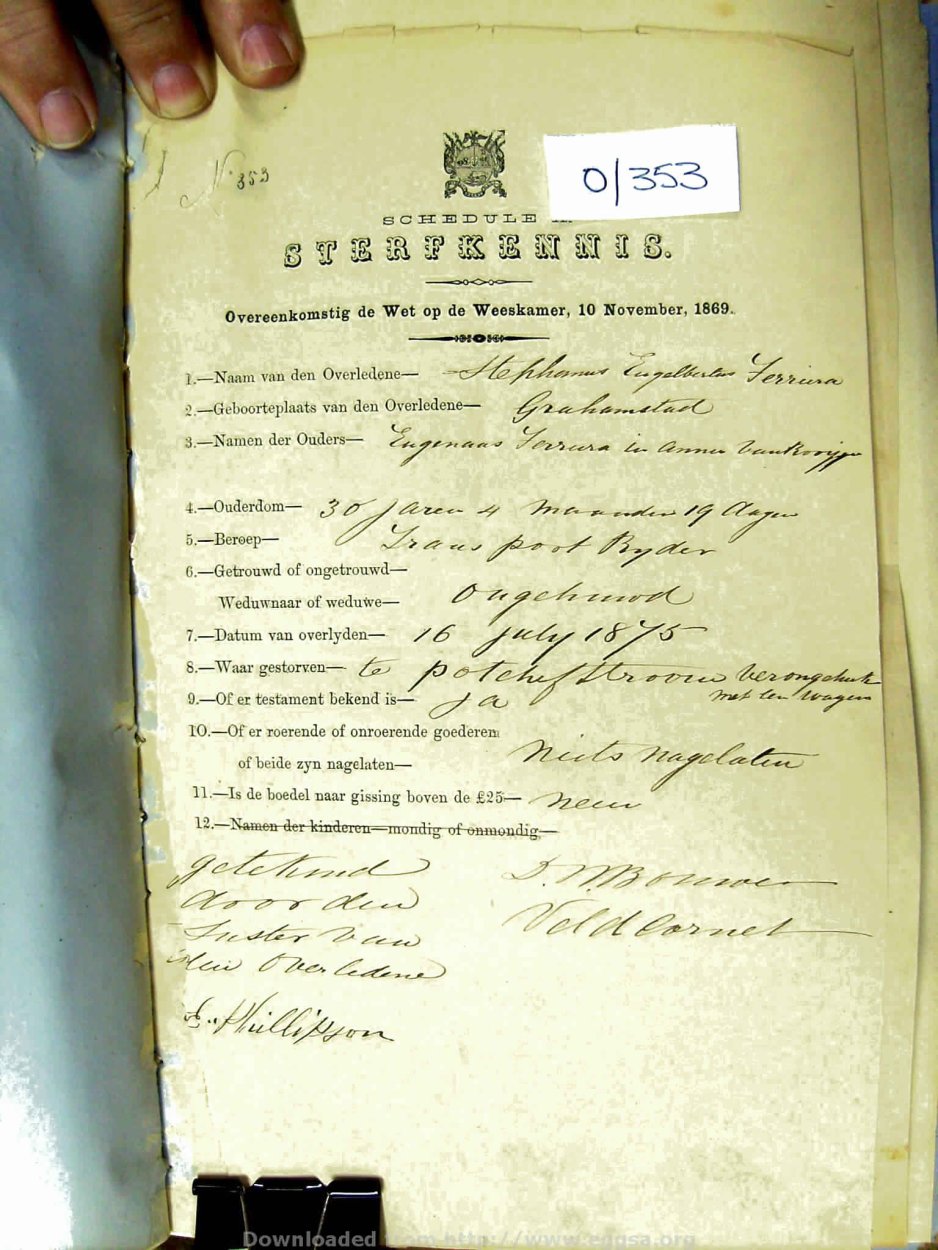 No. 353
0/353
SCHEDULE
STERFKENNIS.
Overeenkomstig de Wet op de Weeskamer, 10 November, 1869.
1.—Naam van den Overledene— Stephanus Engelbertus Ferriera
2.—Geboorteplaats van den Overledene— Grahamstad
3.—Namen der Ouders— Eugenaas Ferrura en Anna van Rooyen
4.—Ouderdom— 30 Jaren 4 maanden 19 dagen
5.—Beroep— Trans poort Ryder
6.—Getrouwd of ongetrouwd—
Weduwnaar of weduwe— Ongehuwd
7.—Datum van overlyden— 16 July 1875
8.—Waar gestorven— te potchefstroom verongelukt
met een wagen
9.—Of er testament bekend is— Ja
10.—Of er roerende of onroerende goederen
of beide zyn nagelaten— Niets nagelaten
11.—Is de boedel naar gissing boven de £25— Neen
12.—Namen der kinderen—mondig of onmondig—
getekend
door den
Suster van
den Overledene
E. Phillipson
Veld Cornet
Downloaded from http://www.eggsa.org